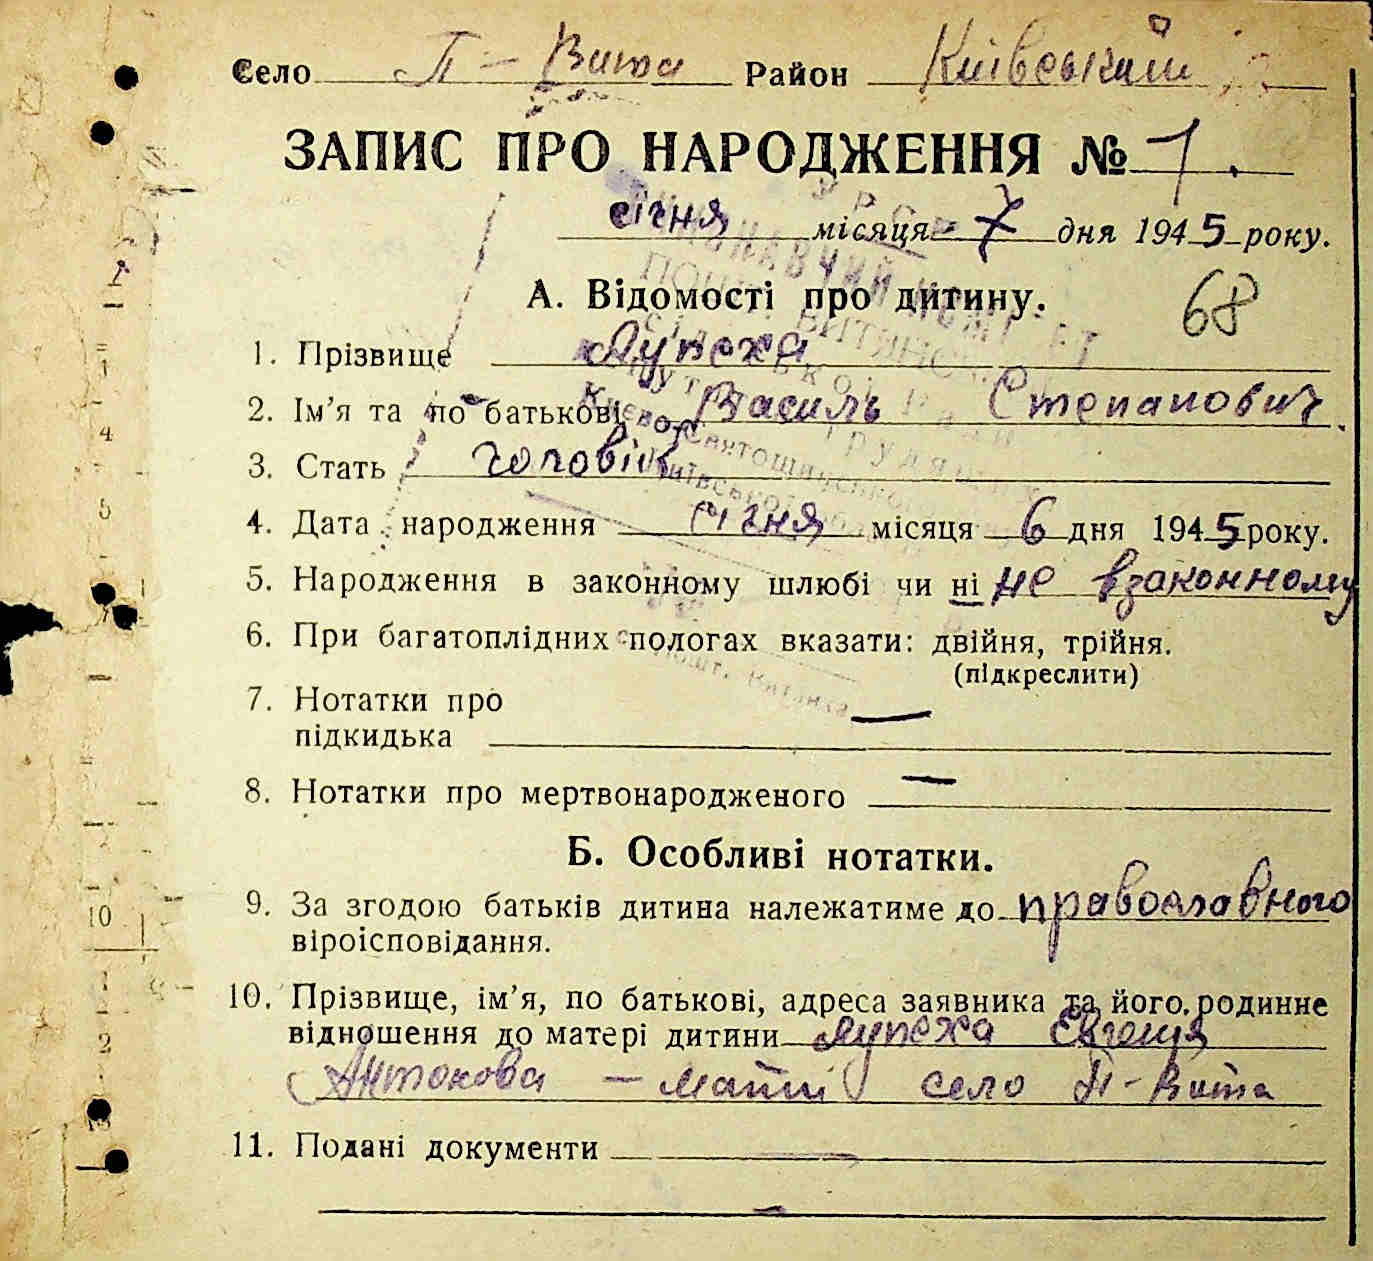 Село П - Вита Район Київський
ЗАПИС ПРО НАРОДЖЕННЯ № 1.
січня місяця 7 дня 1945 року.
А. Відомості про дитину.
68
1. Прізвище Лупеха
2. Ім'я та по батькові Василь Степанович
3. Стать чоловік
4. Дата народження січня місяця 6 дня 1945 року.
5. Народження в законному шлюбі чи ні не взаконному
6. При багатоплідних пологах вказати: двійня, трійня.
(підкреслити)
7. Нотатки про
підкидька —
8. Нотатки про мертвонародженого —
Б. Особливі нотатки.
9. За згодою батьків дитина належатиме до православного
віроісповідання.
10. Прізвище, ім'я, по батькові, адреса заявника та його родинне
відношення до матері дитини Лупеха Євгенія
Антонова — матері село П - Вита
11. Подані документи —